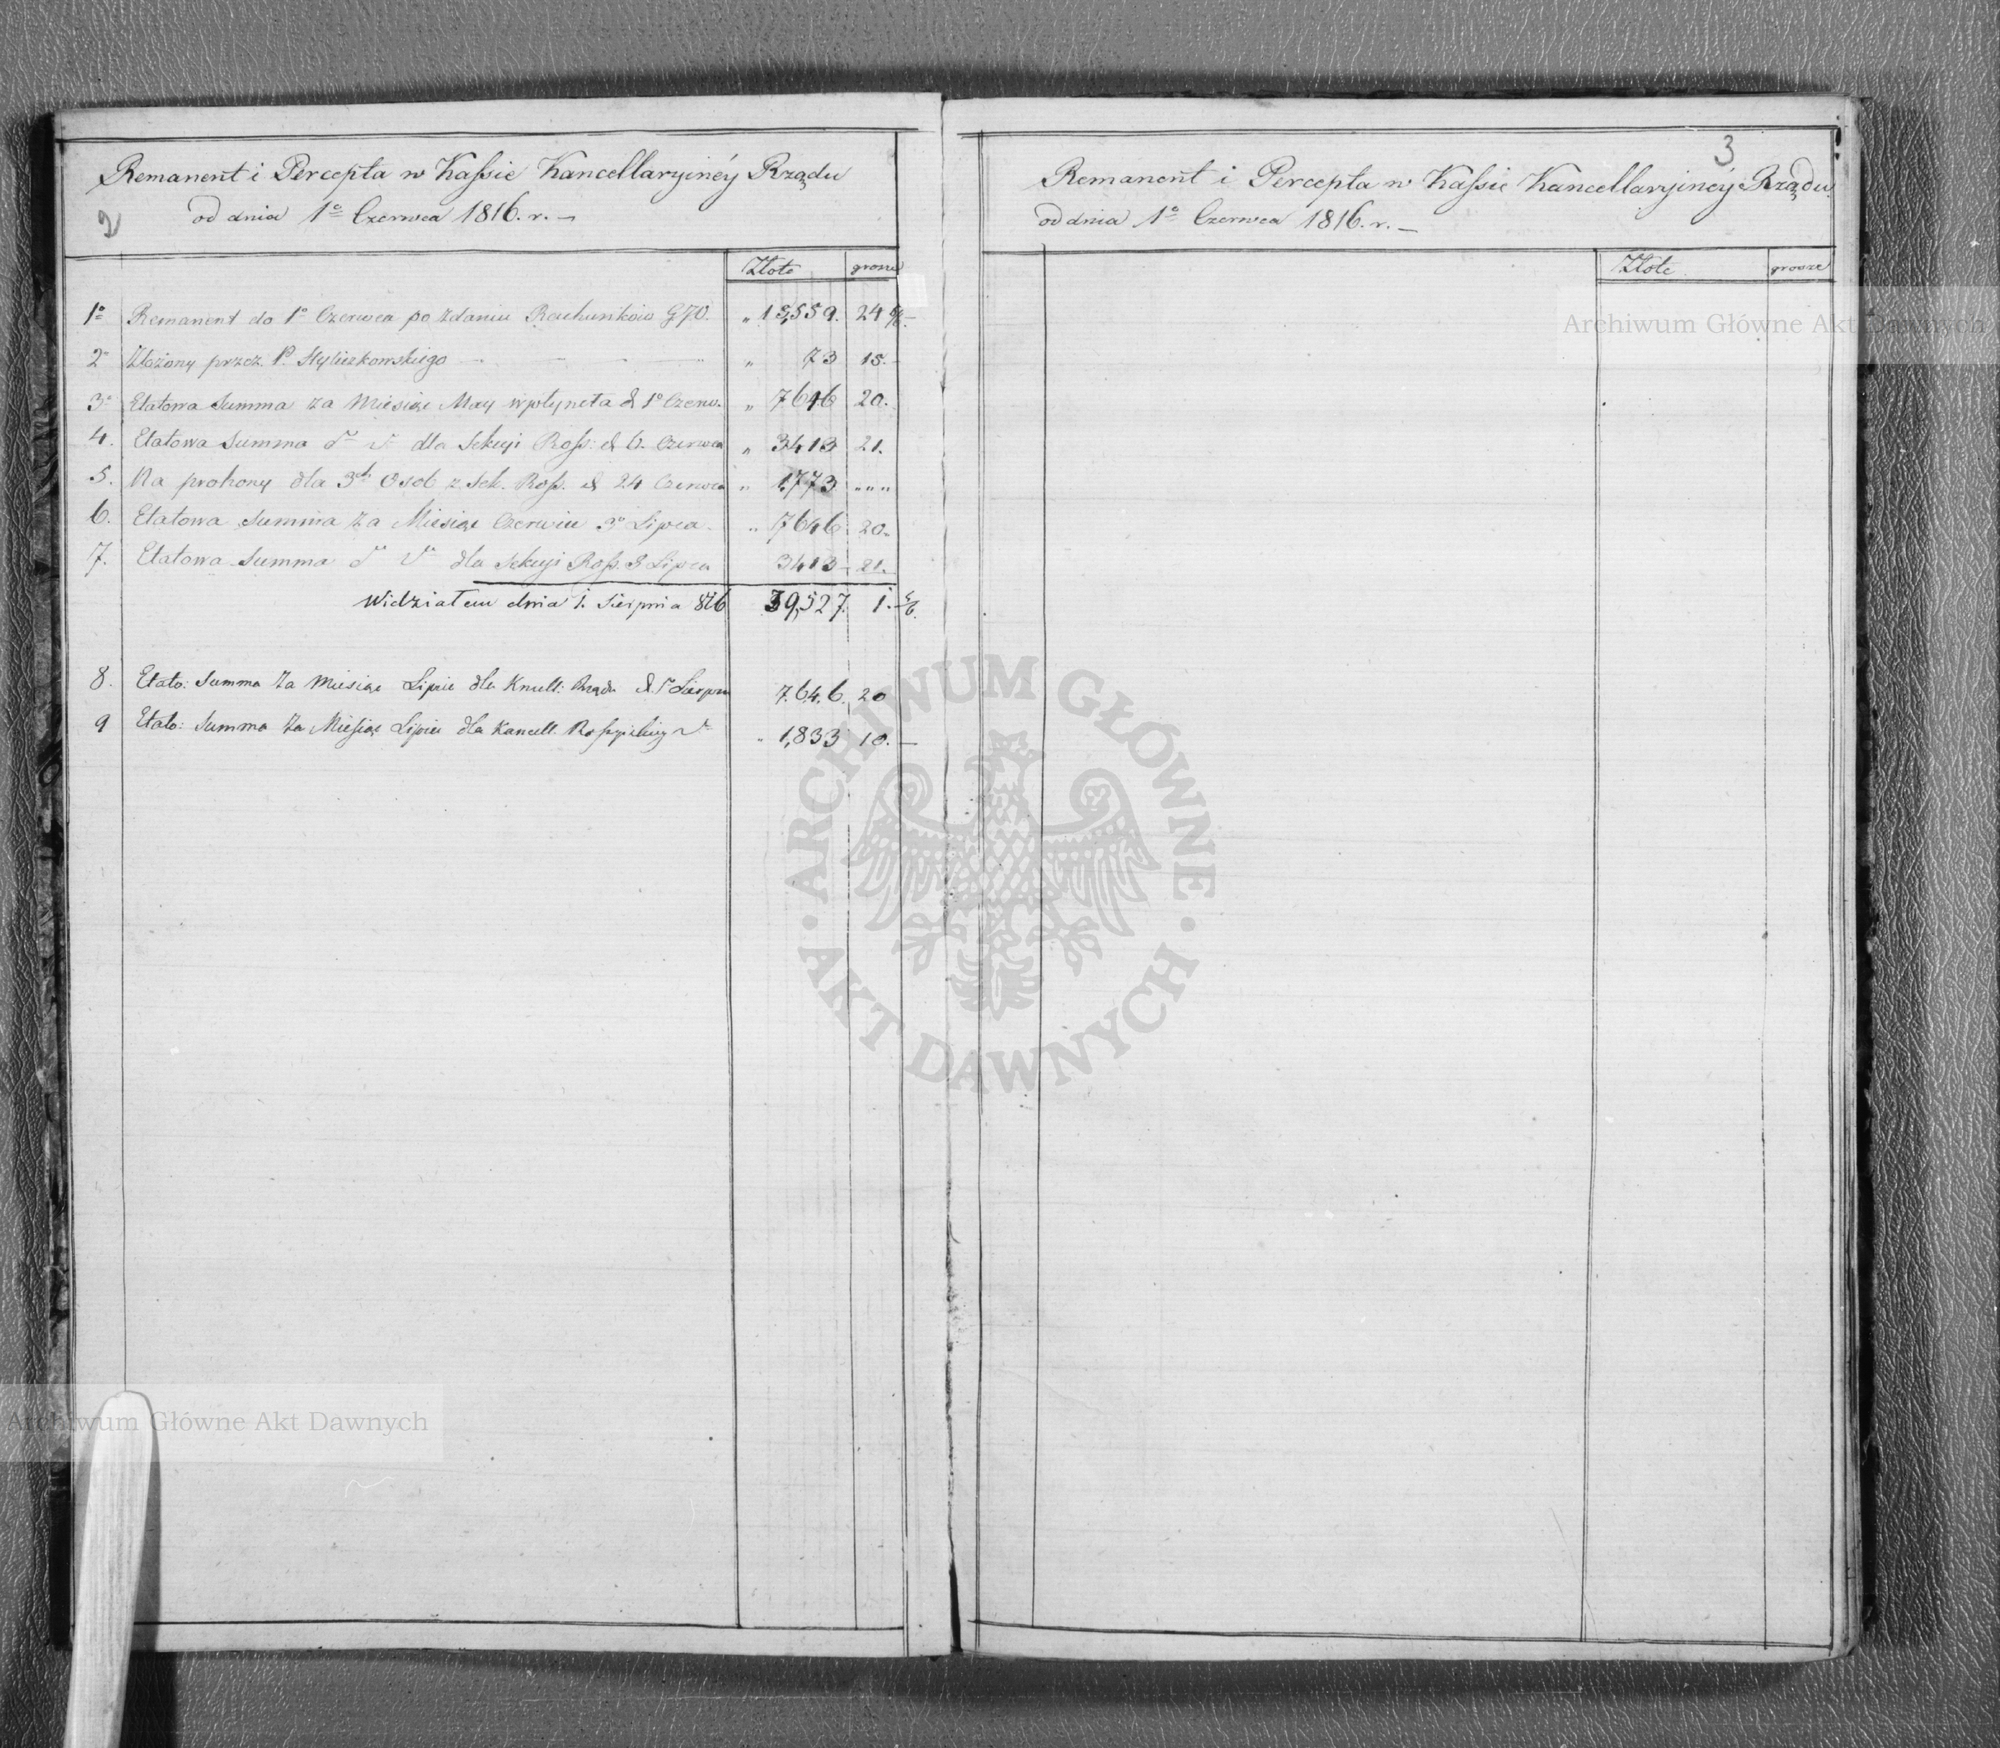 Remanent i Percepta w Kassie Kancellaryinéy Rządu
2
od dnia 1º Czerwca 1816. r. —
Złote grosze
1º Remanent do 1º Czerwca po zdaniu Rachunków „ 15,559. 24 5/6.—
2º Złożony przez P. — — — „ 73 15.—
3º Etatowa Summa za Miesiąc May wpłynęła d. 1º Czerw. „ 7646 20.
4. Etatowa Summa dto dto dla Sekcyi Ross: d. 6. Czerwca „ 3413 21.
5. Na prohony dla 3ch Osob z Sek. Ross. d. 24 Czerwca „ 1773 „„„
6. Etatowa Summa za Miesiąc Czerwiec 3º Lipca. „ 7646 20.
7. Etatowa Summa dto dto dla Sekcyi Ross. 3 Lipca 3413 — 21.
Widziałem dnia 1. Sierpnia 816 39,527. 1. — 5/6.
8. Etato: Summa za Miesiąc Lipiec dla Rządu d. Sierpnia 7.646. 20
9 Etato: Summa za Miesiąc Lipiec dla Kancell. Rossyiskiey dto „ 1,833 10. —
3
Remanent i Percepta w Kassie Kancellaryinéy Rządu
od dnia 1º Czerwca 1816. r. —
Złote grosze
Archiwum Główne Akt Dawnych
ARCHIWUM GŁÓWNE
AKT DAWNYCH
Archiwum Główne Akt Dawnych